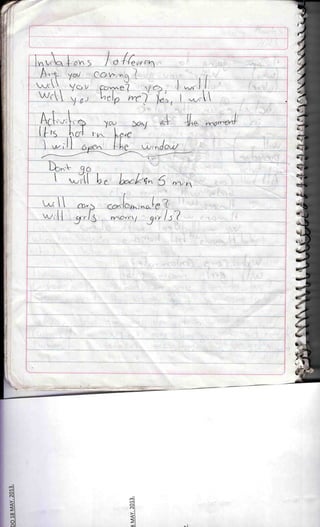 Invitations / offering
Are you coming?
Will you come? yes, I will
Will you help me? Yes, I will
Activities you say at the moment
It is hot in here
I will open the window
Don't go
I will be back in 5 min
will cars contaminate?
will girls marry girls?
DO 18 MAY. 2013.
8 MAY. 2013.